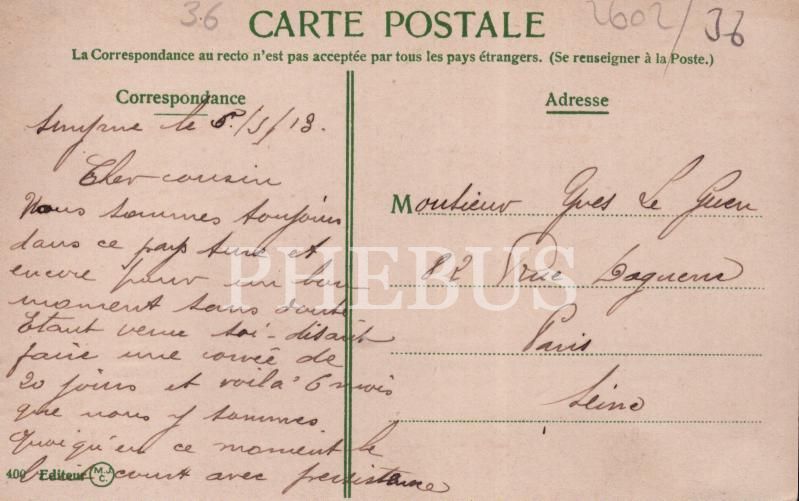 36
2602/36
CARTE POSTALE
La Correspondance au recto n'est pas acceptée par tous les pays étrangers. (Se renseigner à la Poste.)
Correspondance
Smyrne le 5/5/13.
Cher cousin
Nous sommes toujours
dans ce pays turc et
encore pour un bon
moment sans doute
Etant venu soi-disant
faire une corvée de
20 jours et voilà 6 mois
que nous y sommes
Quoiqu'en ce moment le
bruit court avec persistance
400 Editeur M.J.C.
Adresse
Monsieur Yves Le Guen
82 rue Daguerre
Paris
Seine
PHEBUS